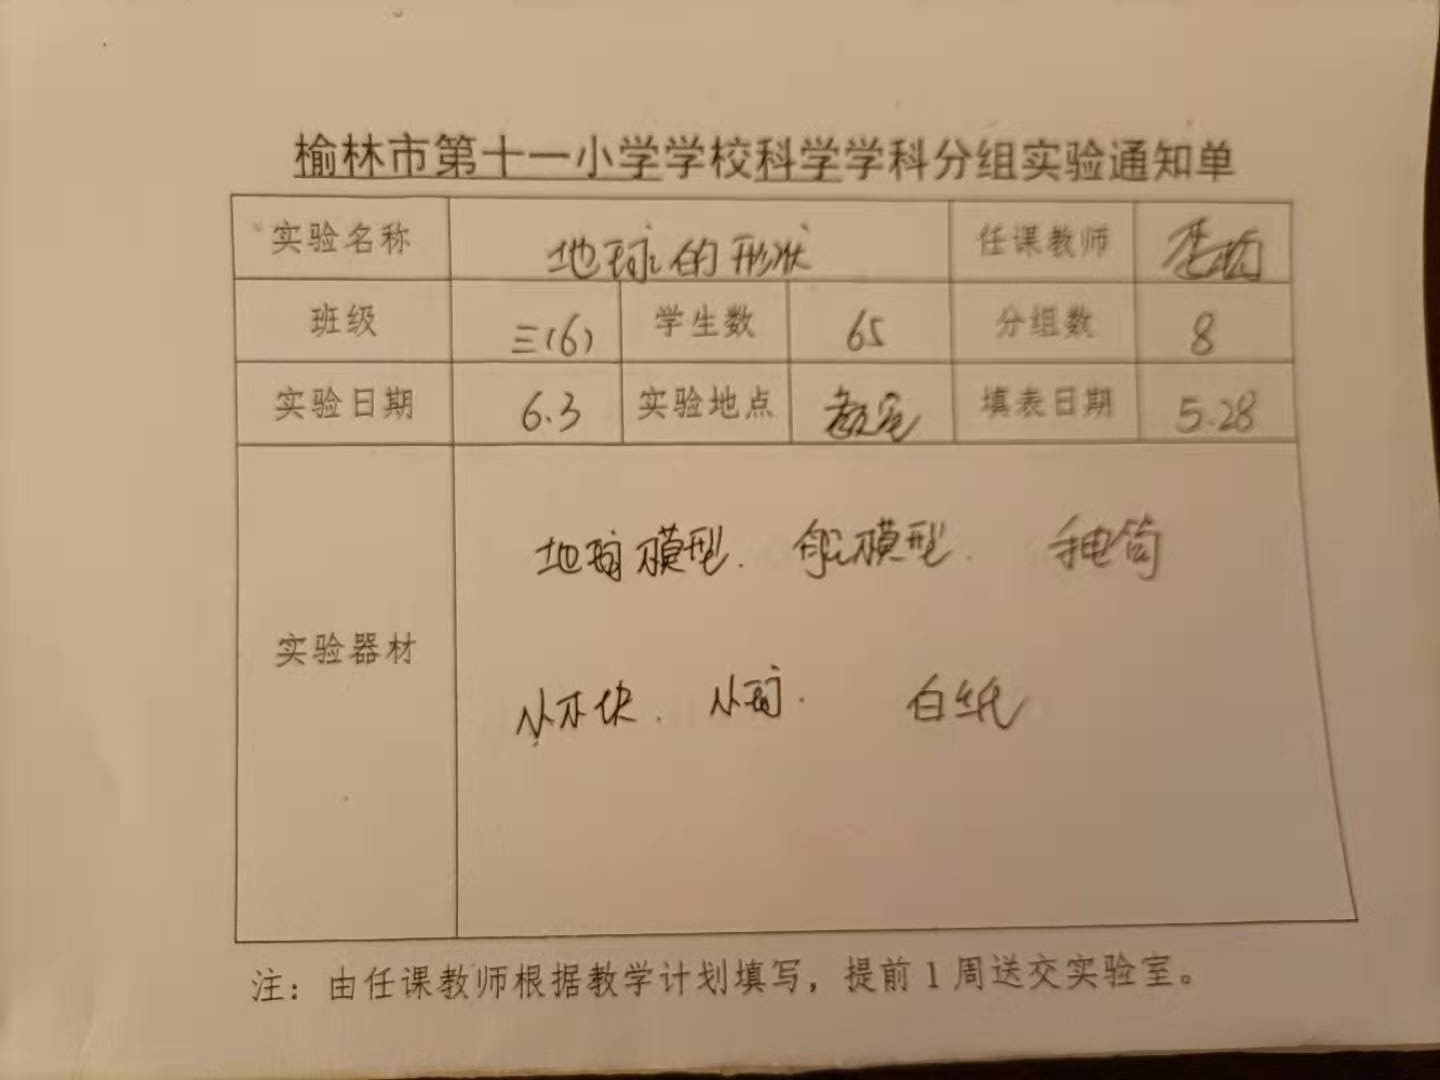 榆林市第十一小学学校科学学科分组实验通知单
实验名称 地球的形状 任课教师
班级 三(6) 学生数 65 分组数 8
实验日期 6.3 实验地点 教室 填表日期 5.28
实验器材
地球模型. 模型. 手电筒
小木块. 小球. 白纸
注：由任课教师根据教学计划填写，提前1周送交实验室。